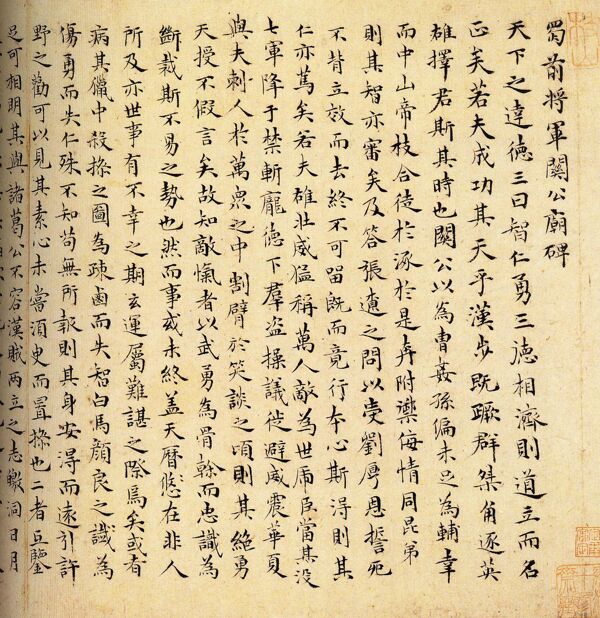 蜀前将軍關公廟碑
天下之達德三曰智仁勇三德相濟則道立而名
正矣若夫成功其天乎漢步既蹶群桀角逐英
雄擇君斯其時也關公以為曹姦孫偏未足為輔幸
而中山帝枝合徒於涿於是奔附禦侮情同昆弟
則其智亦審矣及答張遼之問以受劉厚恩誓死
不背立效而去終不可留既而竟行本心斯得則其
仁亦篤矣若夫雄壯威猛稱萬人敵為世虎臣當其没
七軍降于禁斬龐德下羣盜操議徙避威震華夏
與夫刺人於萬衆之中割臂於笑談之頃則其絶勇
天授不假言矣故知敵愾者以武勇為骨榦而忠識為
斷裁斯不易之勢也然而事或未終蓋天曆悠在非人
所及亦世事有不幸之期玄運屬難諶之際焉矣或者
病其獵中殺操之圖為疎鹵而失智白馬顔良之誡為
傷勇而失仁殊不知苟無所報則其身安得而遠引許
野之勸可以見其素心未嘗須臾而置操也二者互鑒
足可相明其與諸葛公不容漢賊兩立之志皦洞日月